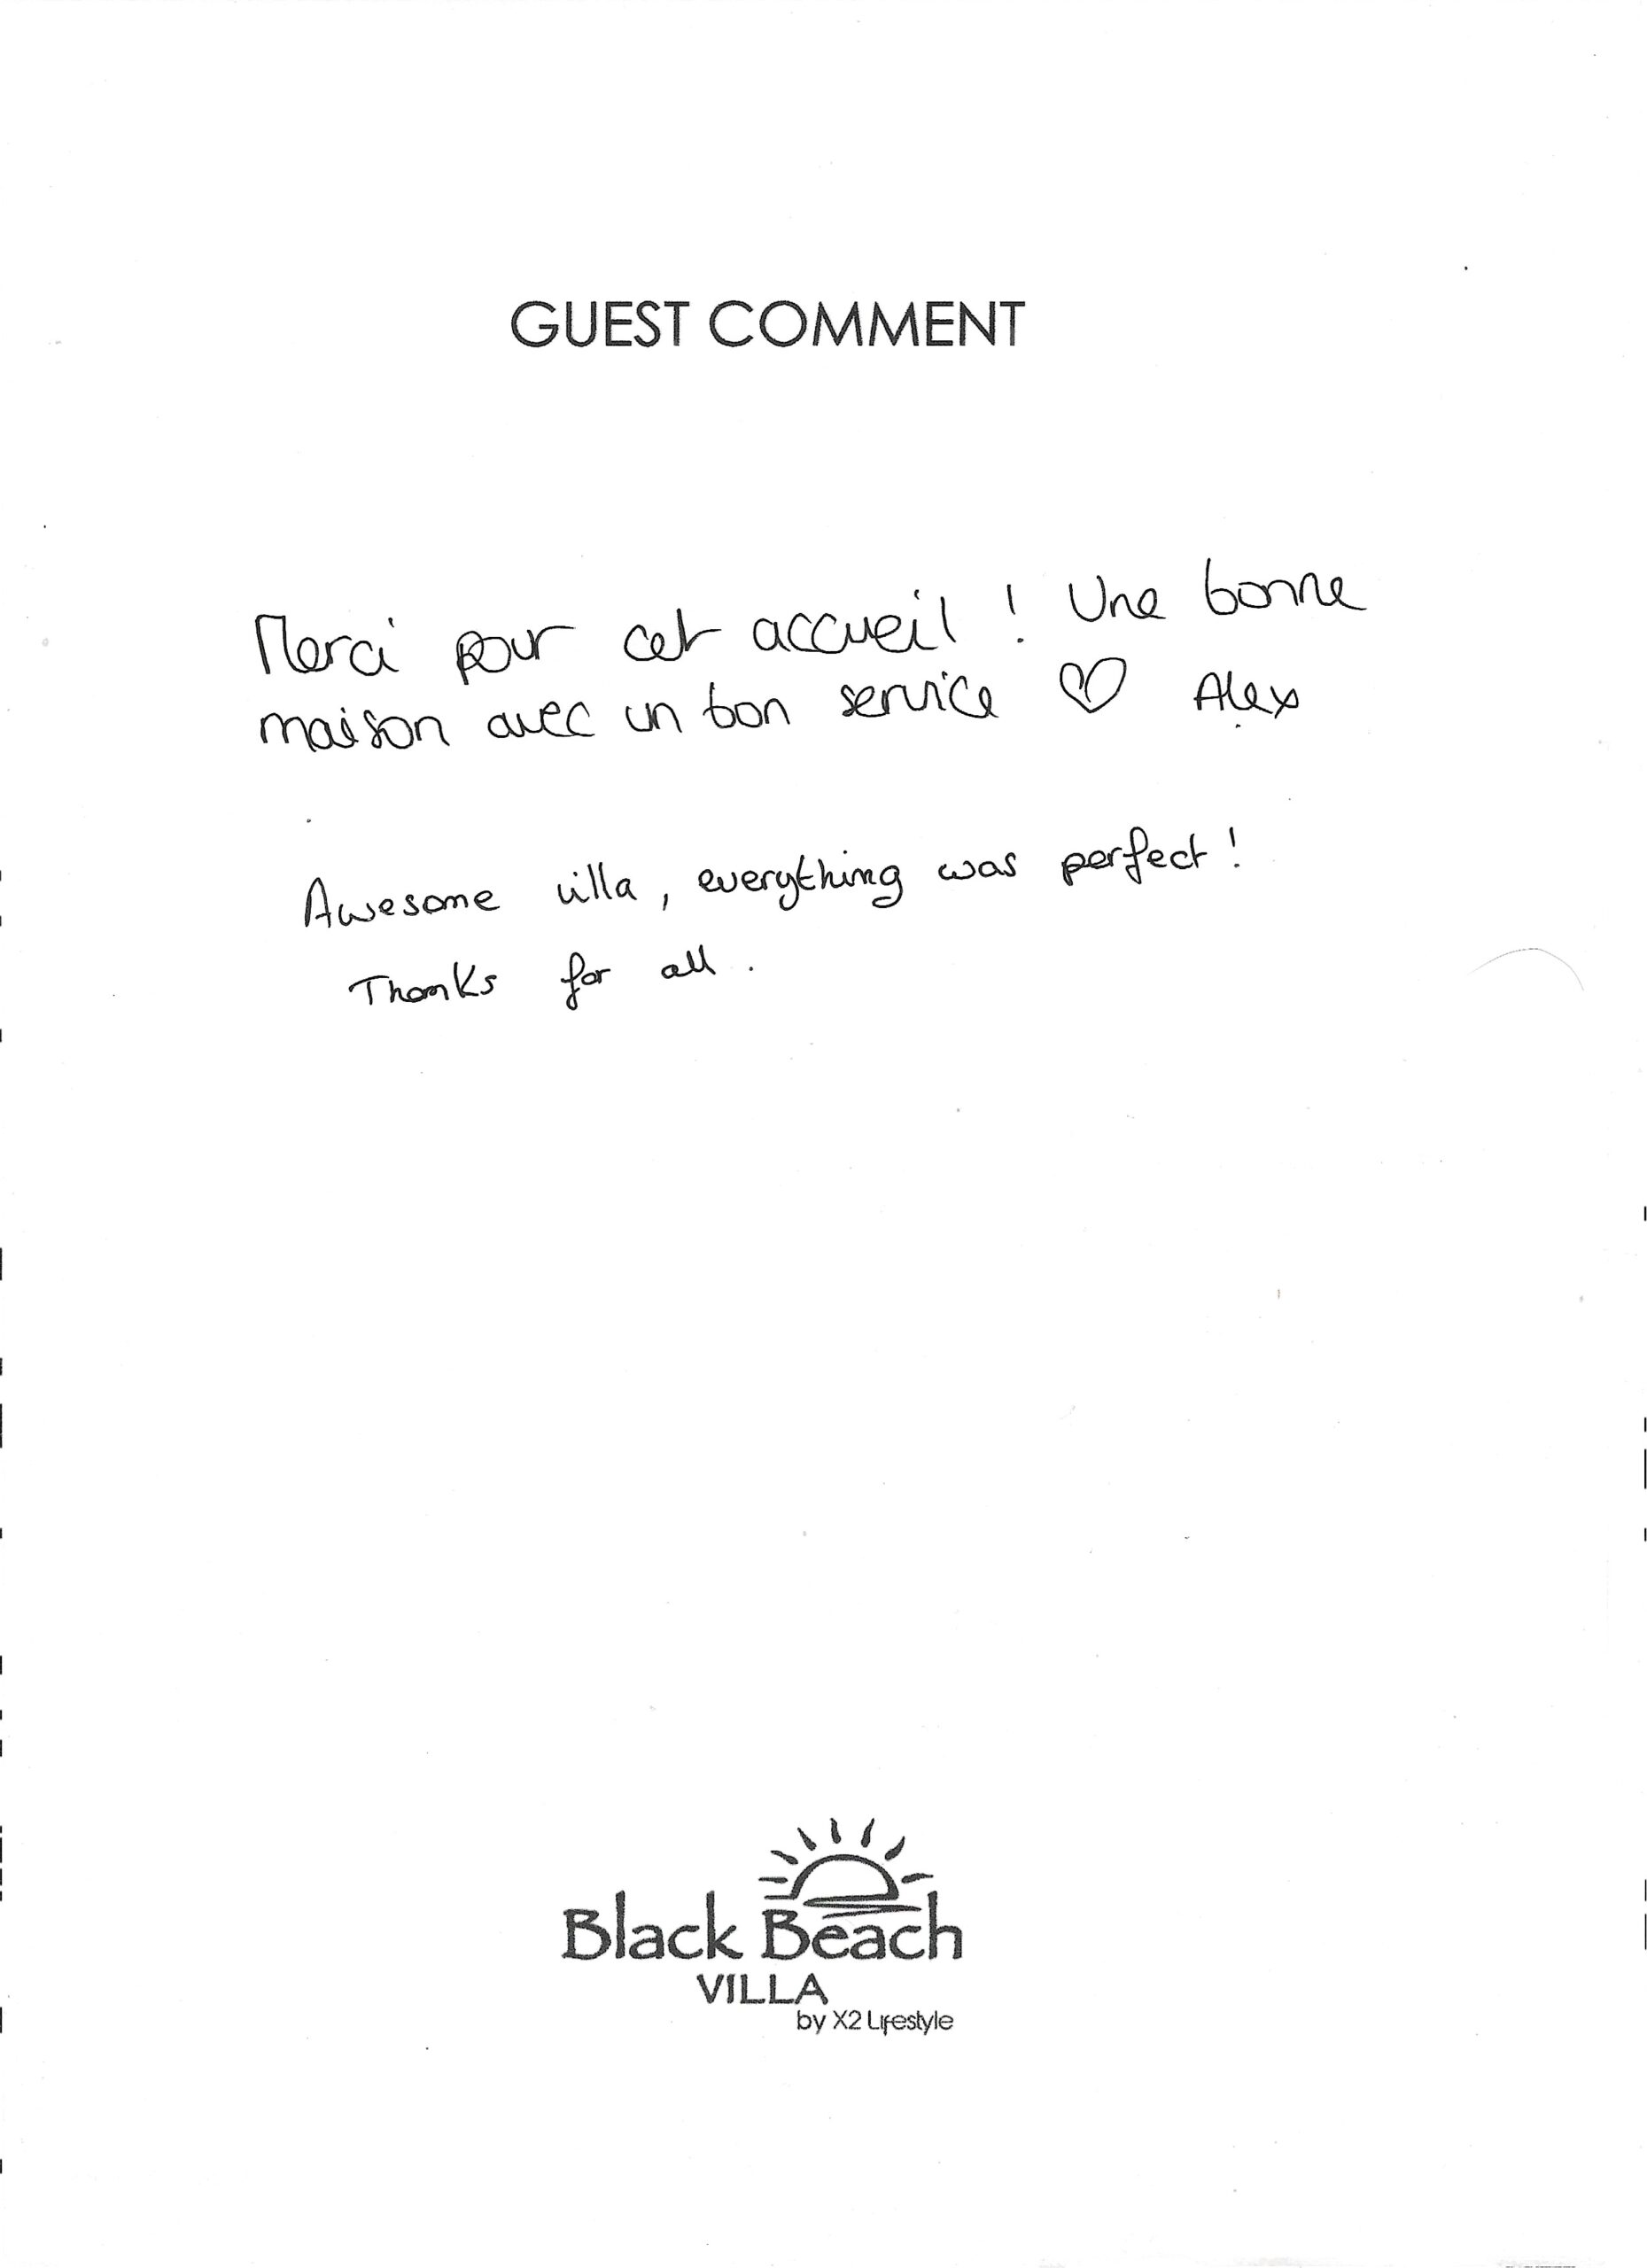 GUEST COMMENT
Merci pour cet accueil ! Une bonne
maison avec un bon service ♡ Alex
Awesome villa, everything was perfect!
Thanks for all.
Black Beach
VILLA
by X2 Lifestyle